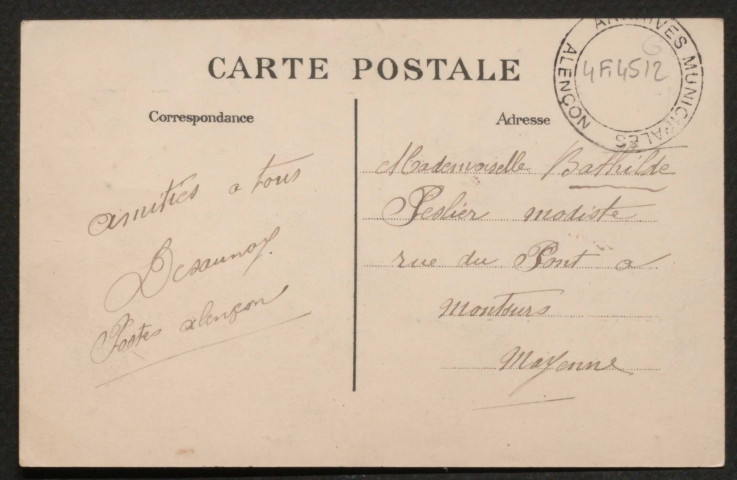 CARTE POSTALE
Correspondance
Adresse
ARCHIVES MUNICIPALES
ALENÇON
4Fi4512
amitiés a tous
Desaunay
Postes alençon
Mademoiselle Bathilde
Peslier modiste
rue du Pont a
Montsurs
Mayenne